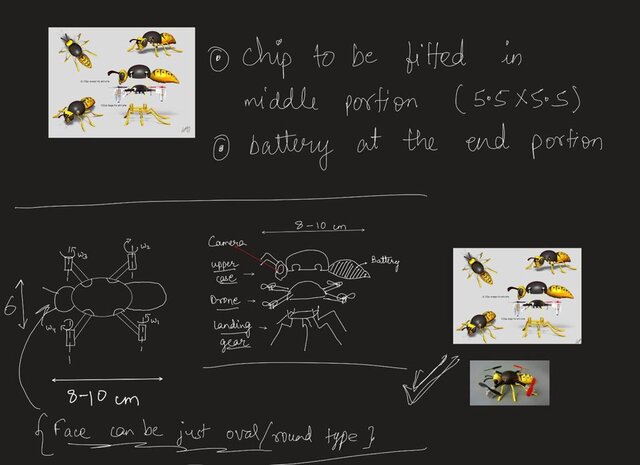 ⊙ Chip to be fitted in
middle portion (5.5 X 5.5)
⊙ battery at the end portion
8-10 cm
Camera
upper case
Battery
Drone
landing gear
ω3
ω2
ω4
ω1
6
8-10 cm
{ Face can be just oval/round type }